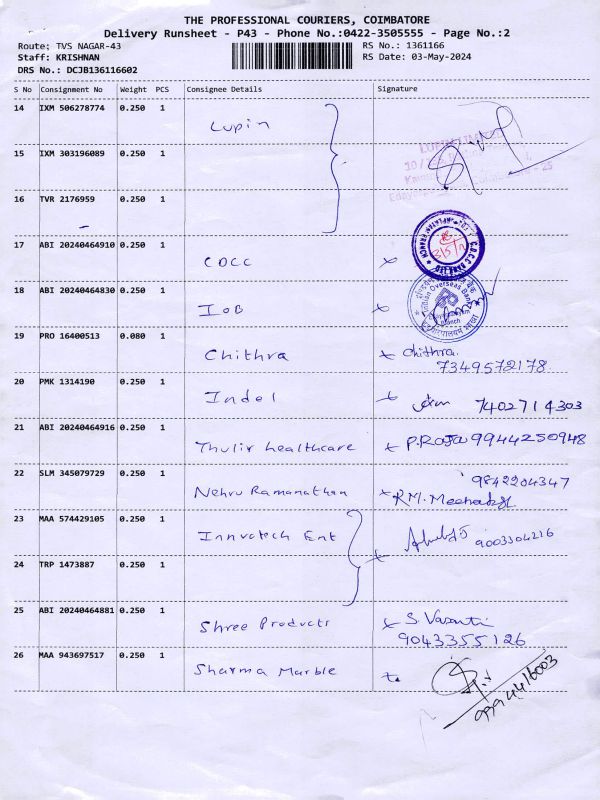 THE PROFESSIONAL COURIERS, COIMBATORE
Delivery Runsheet - P43 - Phone No.:0422-3505555 - Page No.:2
Route: TVS NAGAR-43 RS No.: 1361166
Staff: KRISHNAN RS Date: 03-May-2024
DRS No.: DCJB136116602
S No Consignment No Weight PCS Consignee Details Signature
14 IXM 506278774 0.250 1 Lupin
15 IXM 303196089 0.250 1
16 TVR 2176959 0.250 1
17 ABI 20240464910 0.250 1 CDCC
18 ABI 20240464830 0.250 1 IOB
Indian Overseas Bank
19 PRO 16400513 0.080 1 Chithra chithra.
7349572178
20 PMK 1314190 0.250 1 Indel 7402714303
21 ABI 20240464916 0.250 1 Thulir healthcare P.Raja 9944250948
9842204347
22 SLM 345079729 0.250 1 Nehru Ramanathan
23 MAA 574429105 0.250 1 Innvotech Ent 9003304216
24 TRP 1473887 0.250 1
25 ABI 20240464881 0.250 1 Shree Products S. Vasanti
9043355126
26 MAA 943697517 0.250 1 Sharma Marble